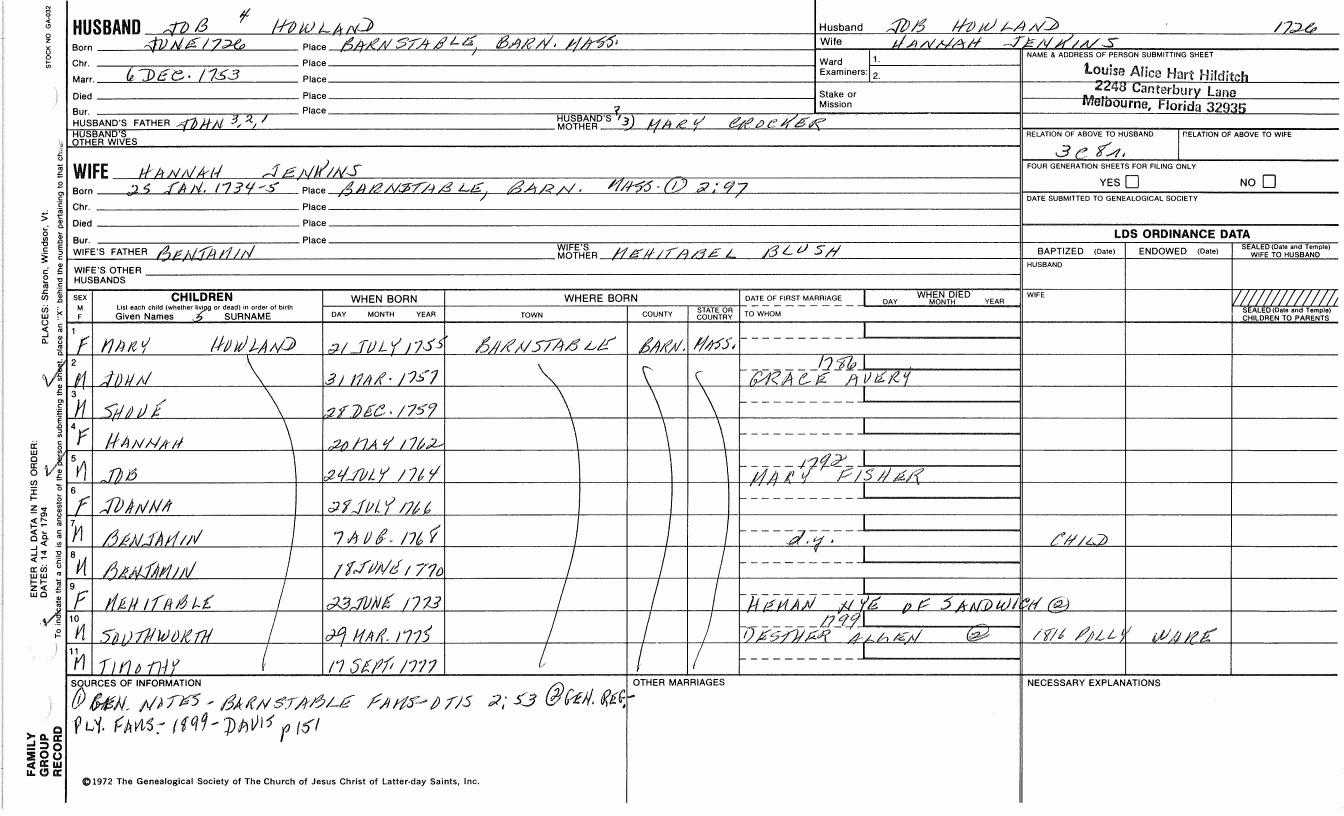 STOCK NO GA-032
PLACES: Sharon, Windsor, Vt.
ENTER ALL DATA IN THIS ORDER:
DATES: 14 Apr 1794
To indicate that a child is an ancestor of the person submitting the sheet, place an "X" behind the number pertaining to that child.
FAMILY
GROUP
RECORD
HUSBAND JOB 4 HOWLAND
Born JUNE 1726 Place BARNSTABLE, BARN. MASS.
Chr. Place
Marr. 6 DEC. 1753 Place
Died Place
Bur. Place
HUSBAND'S FATHER JOHN 3,2,1 HUSBAND'S MOTHER MARY CROCKER
HUSBAND'S
OTHER WIVES
WIFE HANNAH JENKINS
Born 25 JAN. 1734-5 Place BARNSTABLE, BARN. MASS. ① 2:97
Chr. Place
Died Place
Bur. Place
WIFE'S FATHER BENJAMIN WIFE'S MOTHER MEHITABEL BLUSH
WIFE'S OTHER
HUSBANDS
Husband JOB HOWLAND 1726
Wife HANNAH JENKINS
Ward 1.
Examiners: 2.
Stake or
Mission
NAME & ADDRESS OF PERSON SUBMITTING SHEET
Louise Alice Hart Hilditch
2248 Canterbury Lane
Melbourne, Florida 32935
RELATION OF ABOVE TO HUSBAND RELATION OF ABOVE TO WIFE
3C 8r.
FOUR GENERATION SHEETS FOR FILING ONLY
YES NO
DATE SUBMITTED TO GENEALOGICAL SOCIETY
LDS ORDINANCE DATA
BAPTIZED (Date) ENDOWED (Date) SEALED (Date and Temple) WIFE TO HUSBAND
HUSBAND
WIFE
SEALED (Date and Temple)
CHILDREN TO PARENTS
SEX M F CHILDREN WHEN BORN WHERE BORN DATE OF FIRST MARRIAGE WHEN DIED
List each child (whether living or dead) in order of birth
Given Names 5 SURNAME DAY MONTH YEAR TOWN COUNTY STATE OR COUNTRY TO WHOM DAY MONTH YEAR
1 F MARY HOWLAND 21 JULY 1755 BARNSTABLE BARN. MASS.
2 M JOHN 31 MAR. 1757 1786 GRACE AVERY
3 M SHOVE 28 DEC. 1759
4 F HANNAH 20 MAY 1762
5 M JOB 24 JULY 1764 1792 MARY FISHER
6 F JOANNA 28 JULY 1766
7 M BENJAMIN 7 AUG. 1768 d.y. CHILD
8 M BENJAMIN 18 JUNE 1770
9 F MEHITABLE 23 JUNE 1773 HEMAN NYE OF SANDWICH ②
10 M SOUTHWORTH 29 MAR. 1775 1799 DESTHER ALLEN ② 1816 POLLY WARE
11 M TIMOTHY 17 SEPT. 1777
SOURCES OF INFORMATION
① GEN. NOTES - BARNSTABLE FAMS - OTIS 2:53 ② GEN. REG-
PLY. FAMS. - 1899 - DAVIS p151
OTHER MARRIAGES
NECESSARY EXPLANATIONS
©1972 The Genealogical Society of The Church of Jesus Christ of Latter-day Saints, Inc.